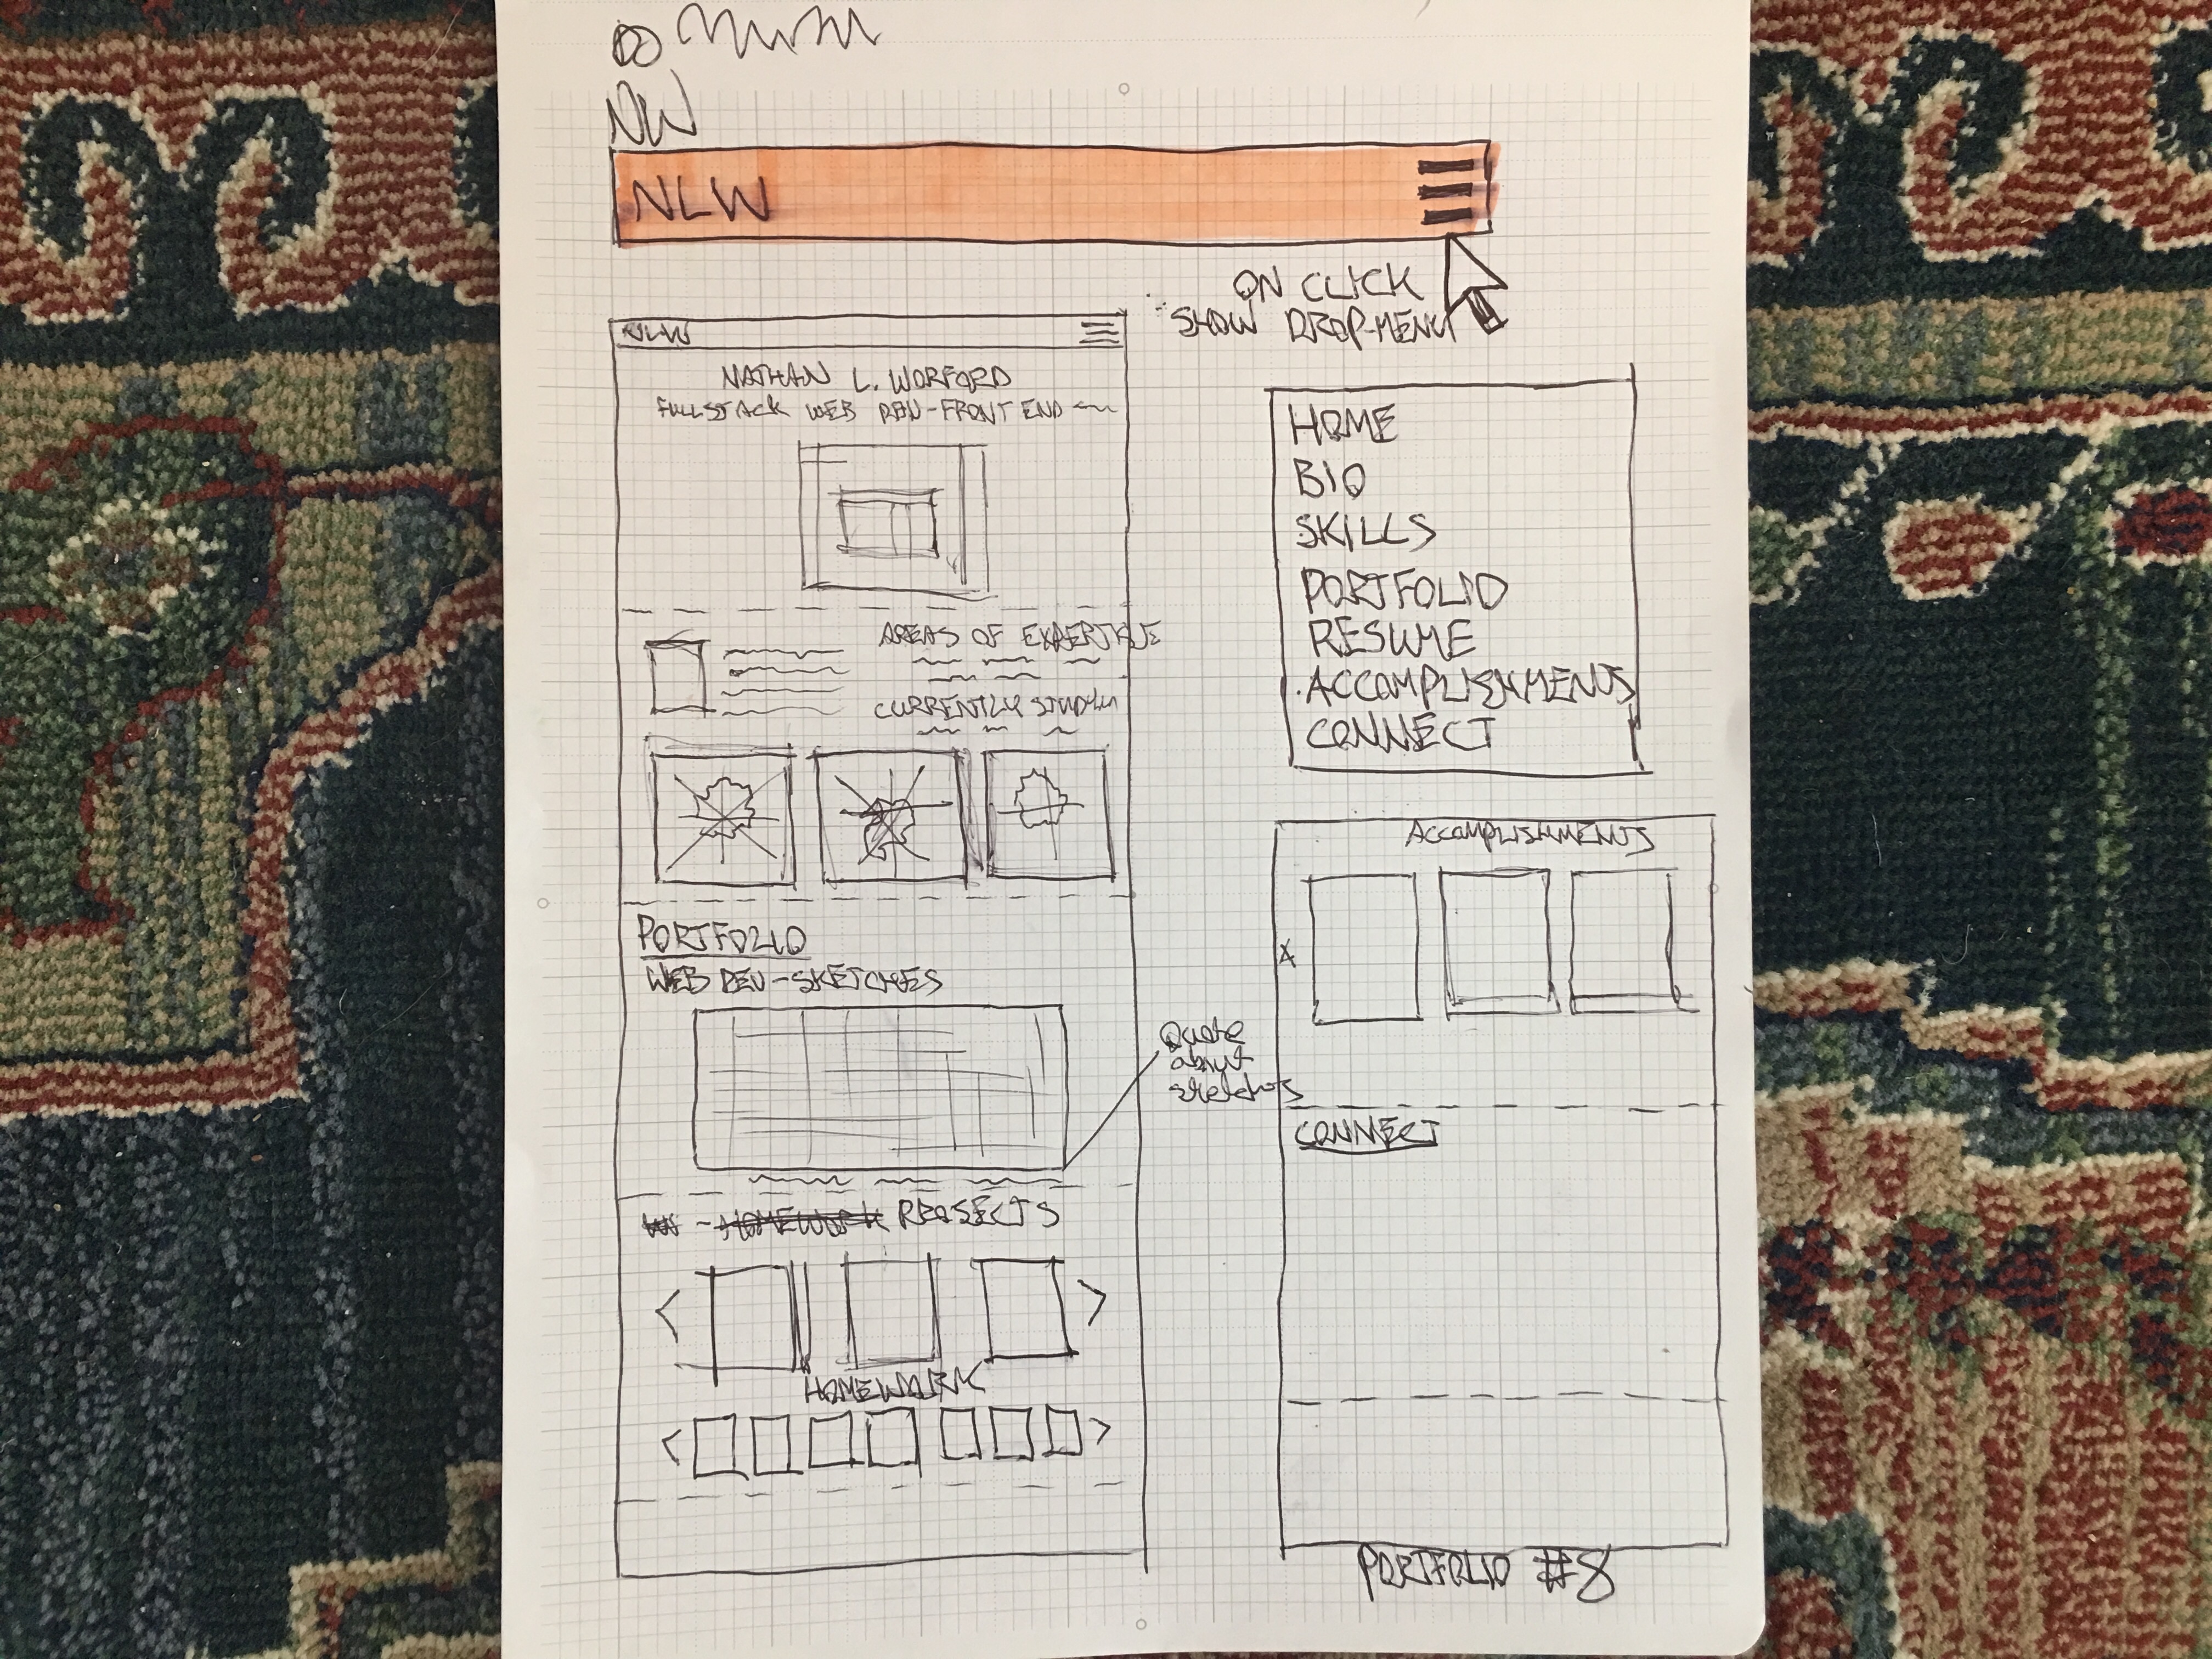 NW
NLW
ON CLICK
SHOW DROP-MENU
NLW
NATHAN L. WORFORD
FULLSTACK WEB DEV-FRONT END
AREAS OF EXPERTISE
CURRENTLY
PORTFOLIO
WEB DEV - SKETCHES
Quote
about
sketches
- HOMEWORK
HOMEWORK
HOME
BIO
SKILLS
PORTFOLIO
RESUME
ACCOMPLISHMENTS
CONNECT
ACCOMPLISHMENTS
CONNECT
PORTFOLIO #8